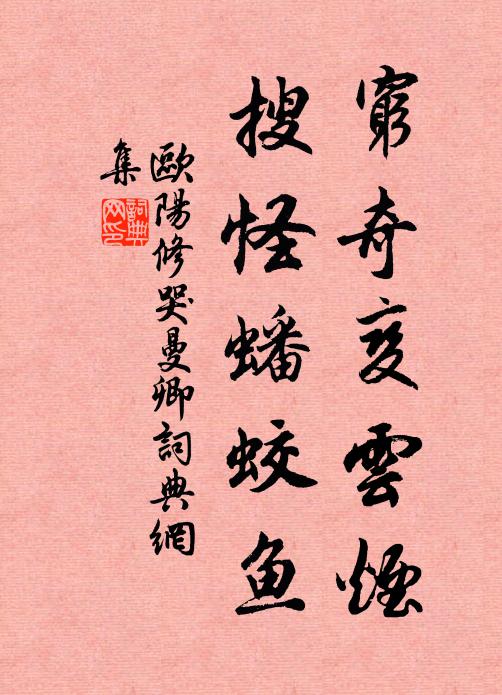 窮奇变雲煙
搜怪蟠蛟魚
歐陽修哭曼卿詞典網
集
詞典
网印